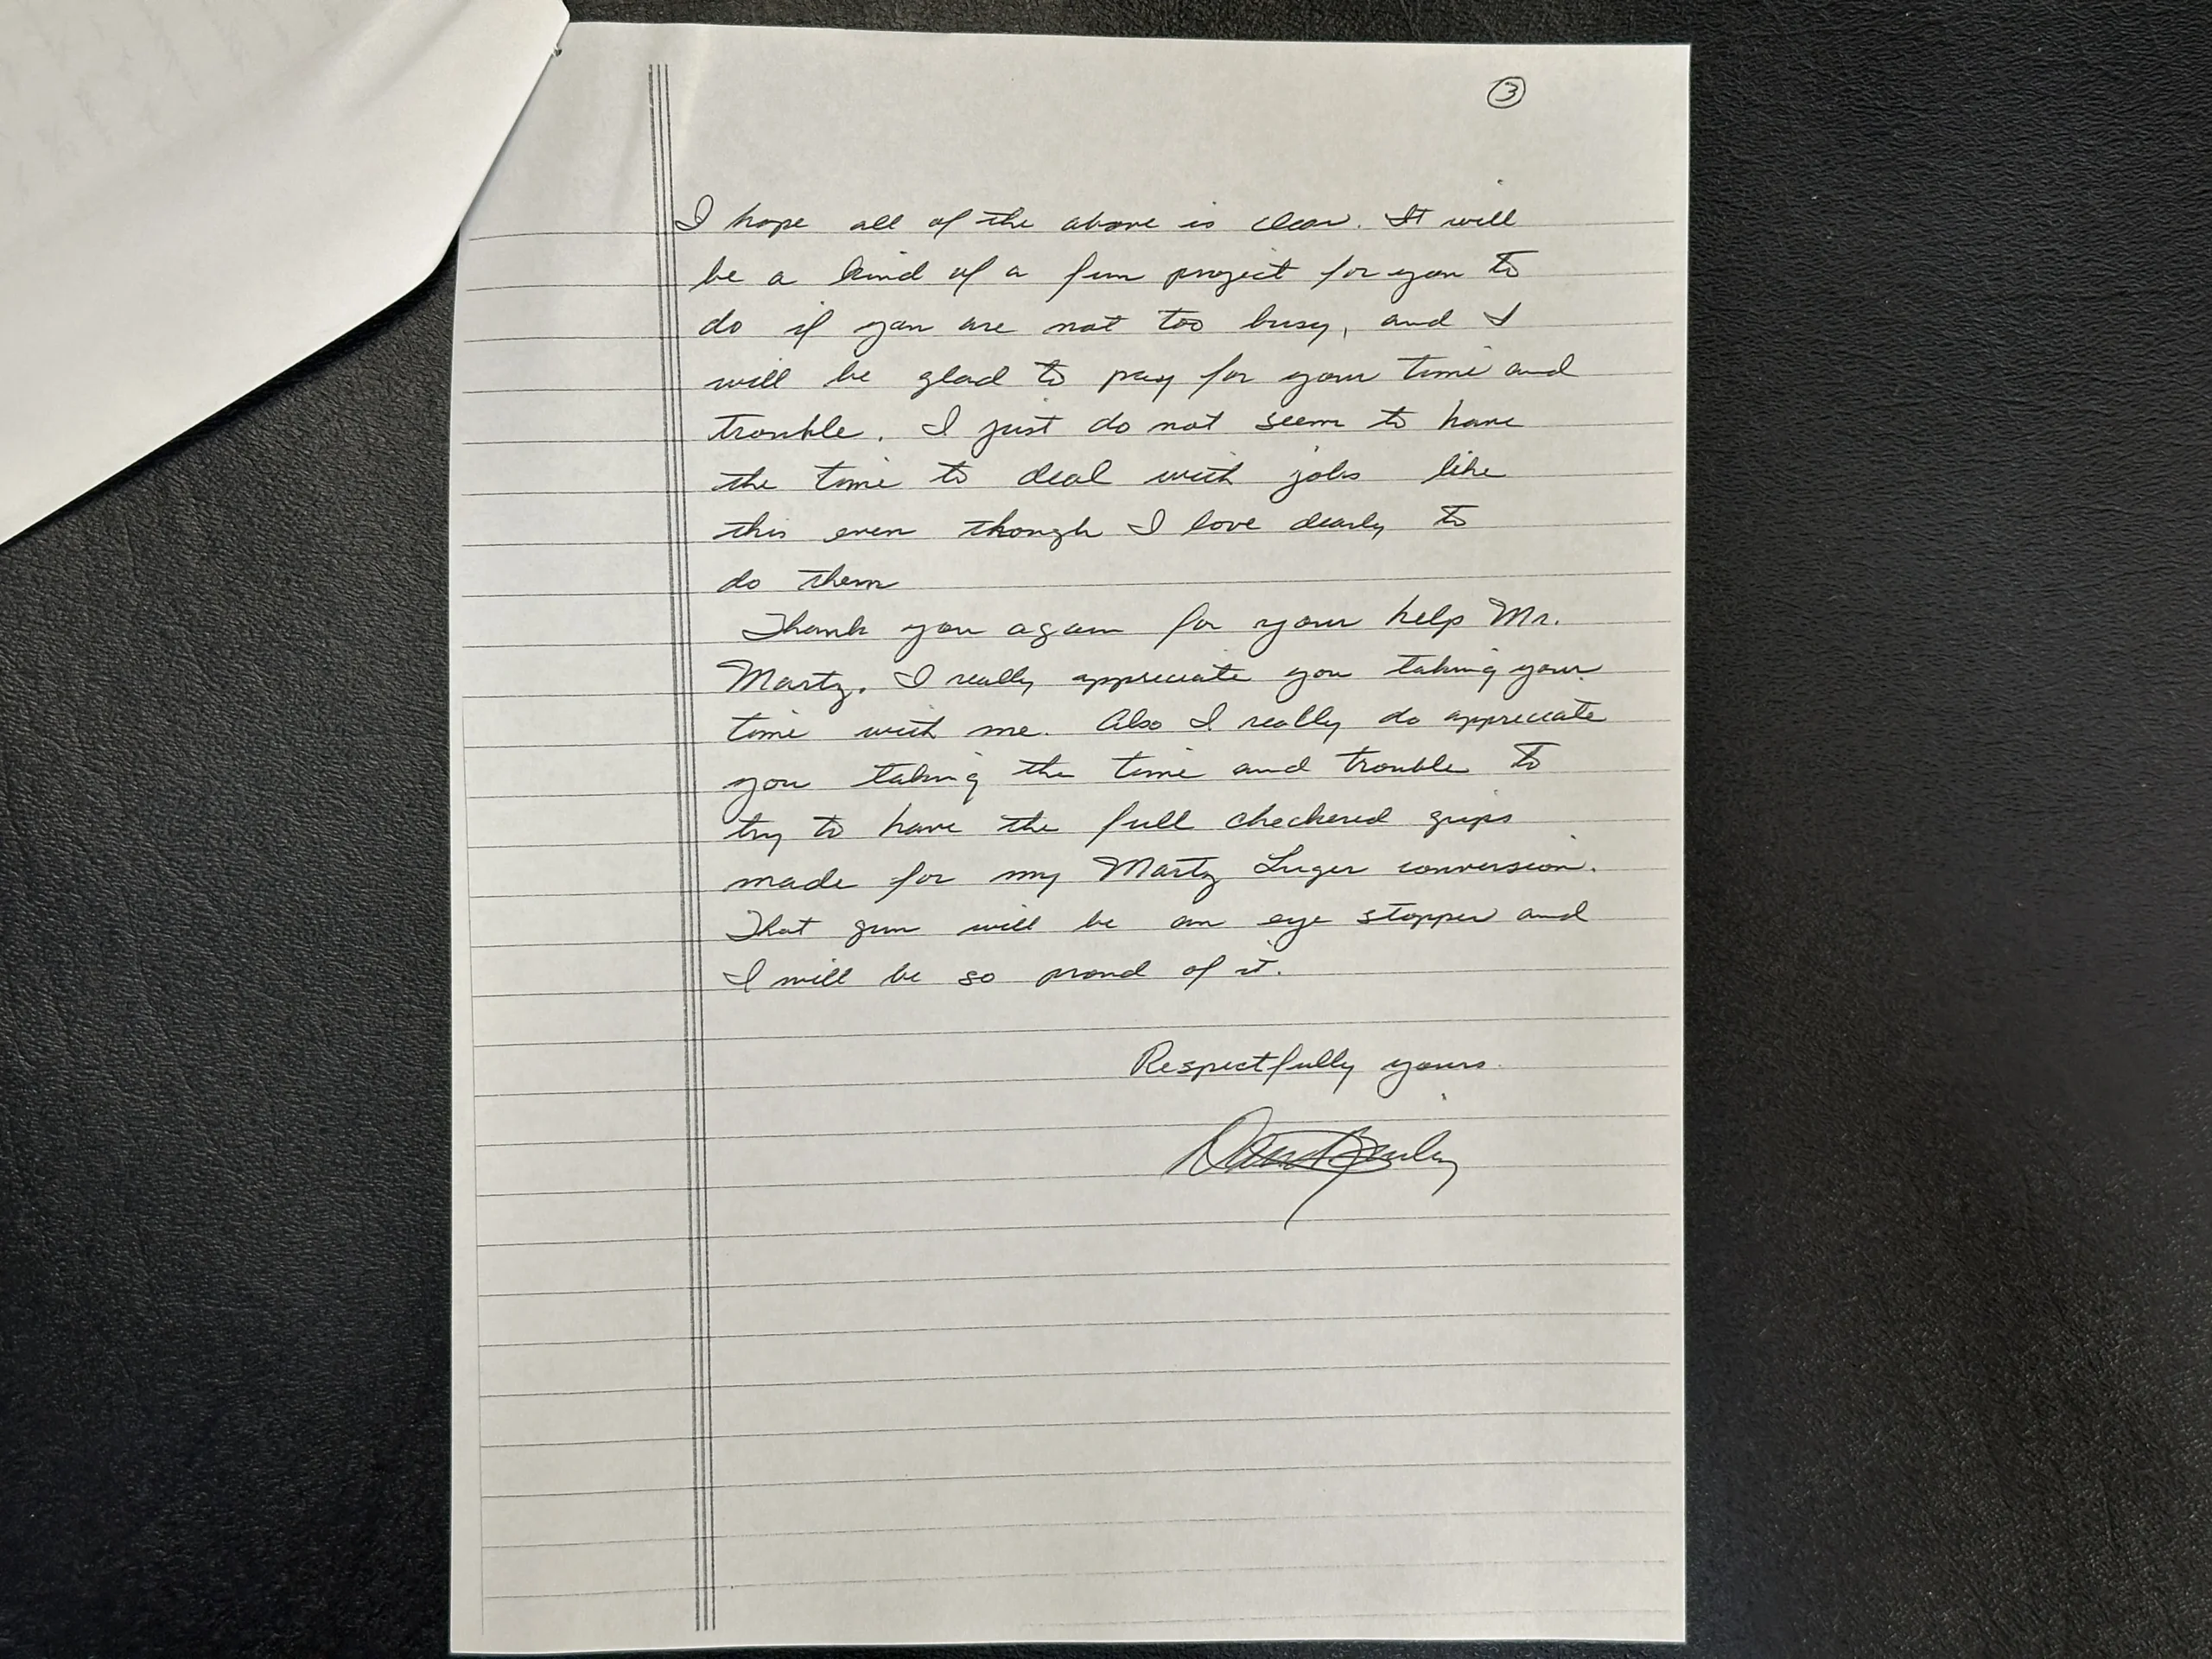 3
I hope all of the above is clear. It will
be a kind of a fun project for you to
do if you are not too busy, and I
will be glad to pay for your time and
trouble. I just do not seem to have
the time to deal with jobs like
this even though I love dearly to
do them
Thank you again for your help Mr.
Martz. I really appreciate you taking your
time with me. Also I really do appreciate
you taking the time and trouble to
try to have the full checkered grips
made for my Martz Luger conversion.
That gun will be an eye stopper and
I will be so proud of it.
Respectfully yours.